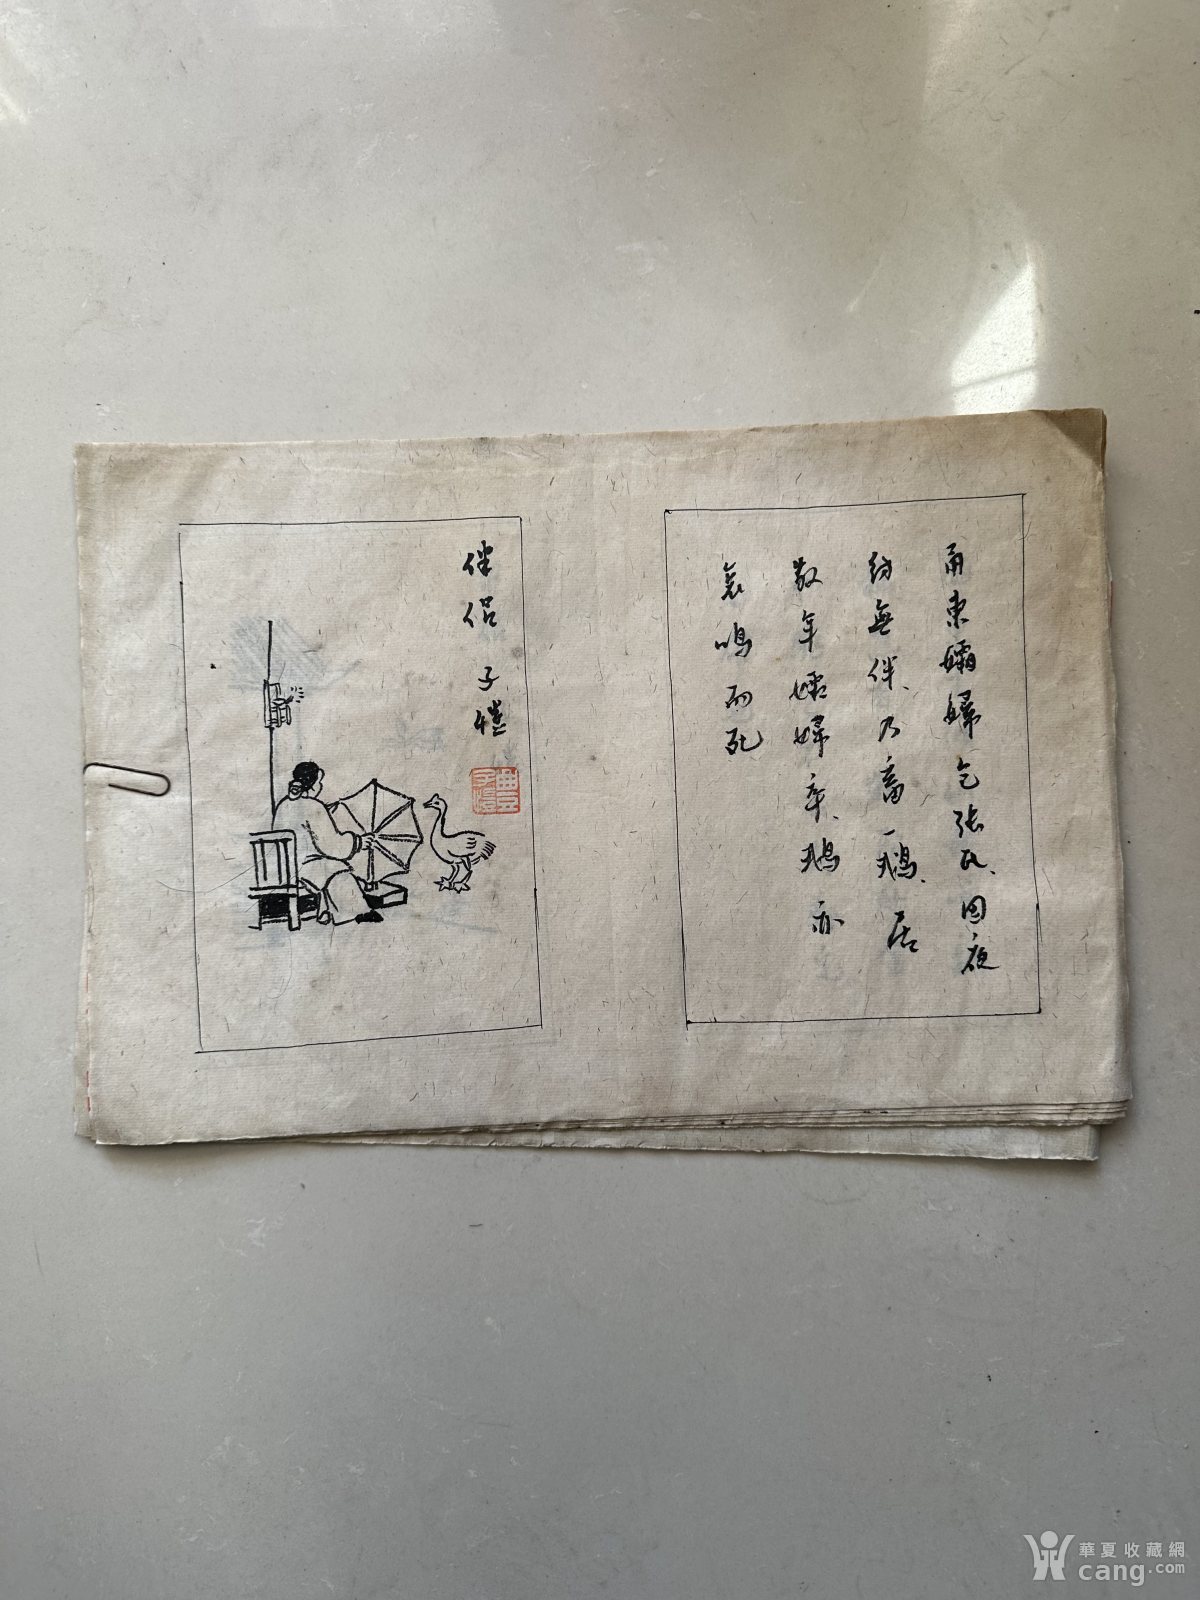 甬東孀婦乞張氏、因夜
紡無伴、乃畜一鵝、居
数年孀婦卒、鵝亦
哀鳴而死
伴侣 子愷
豐子愷
華夏收藏網
cang.com